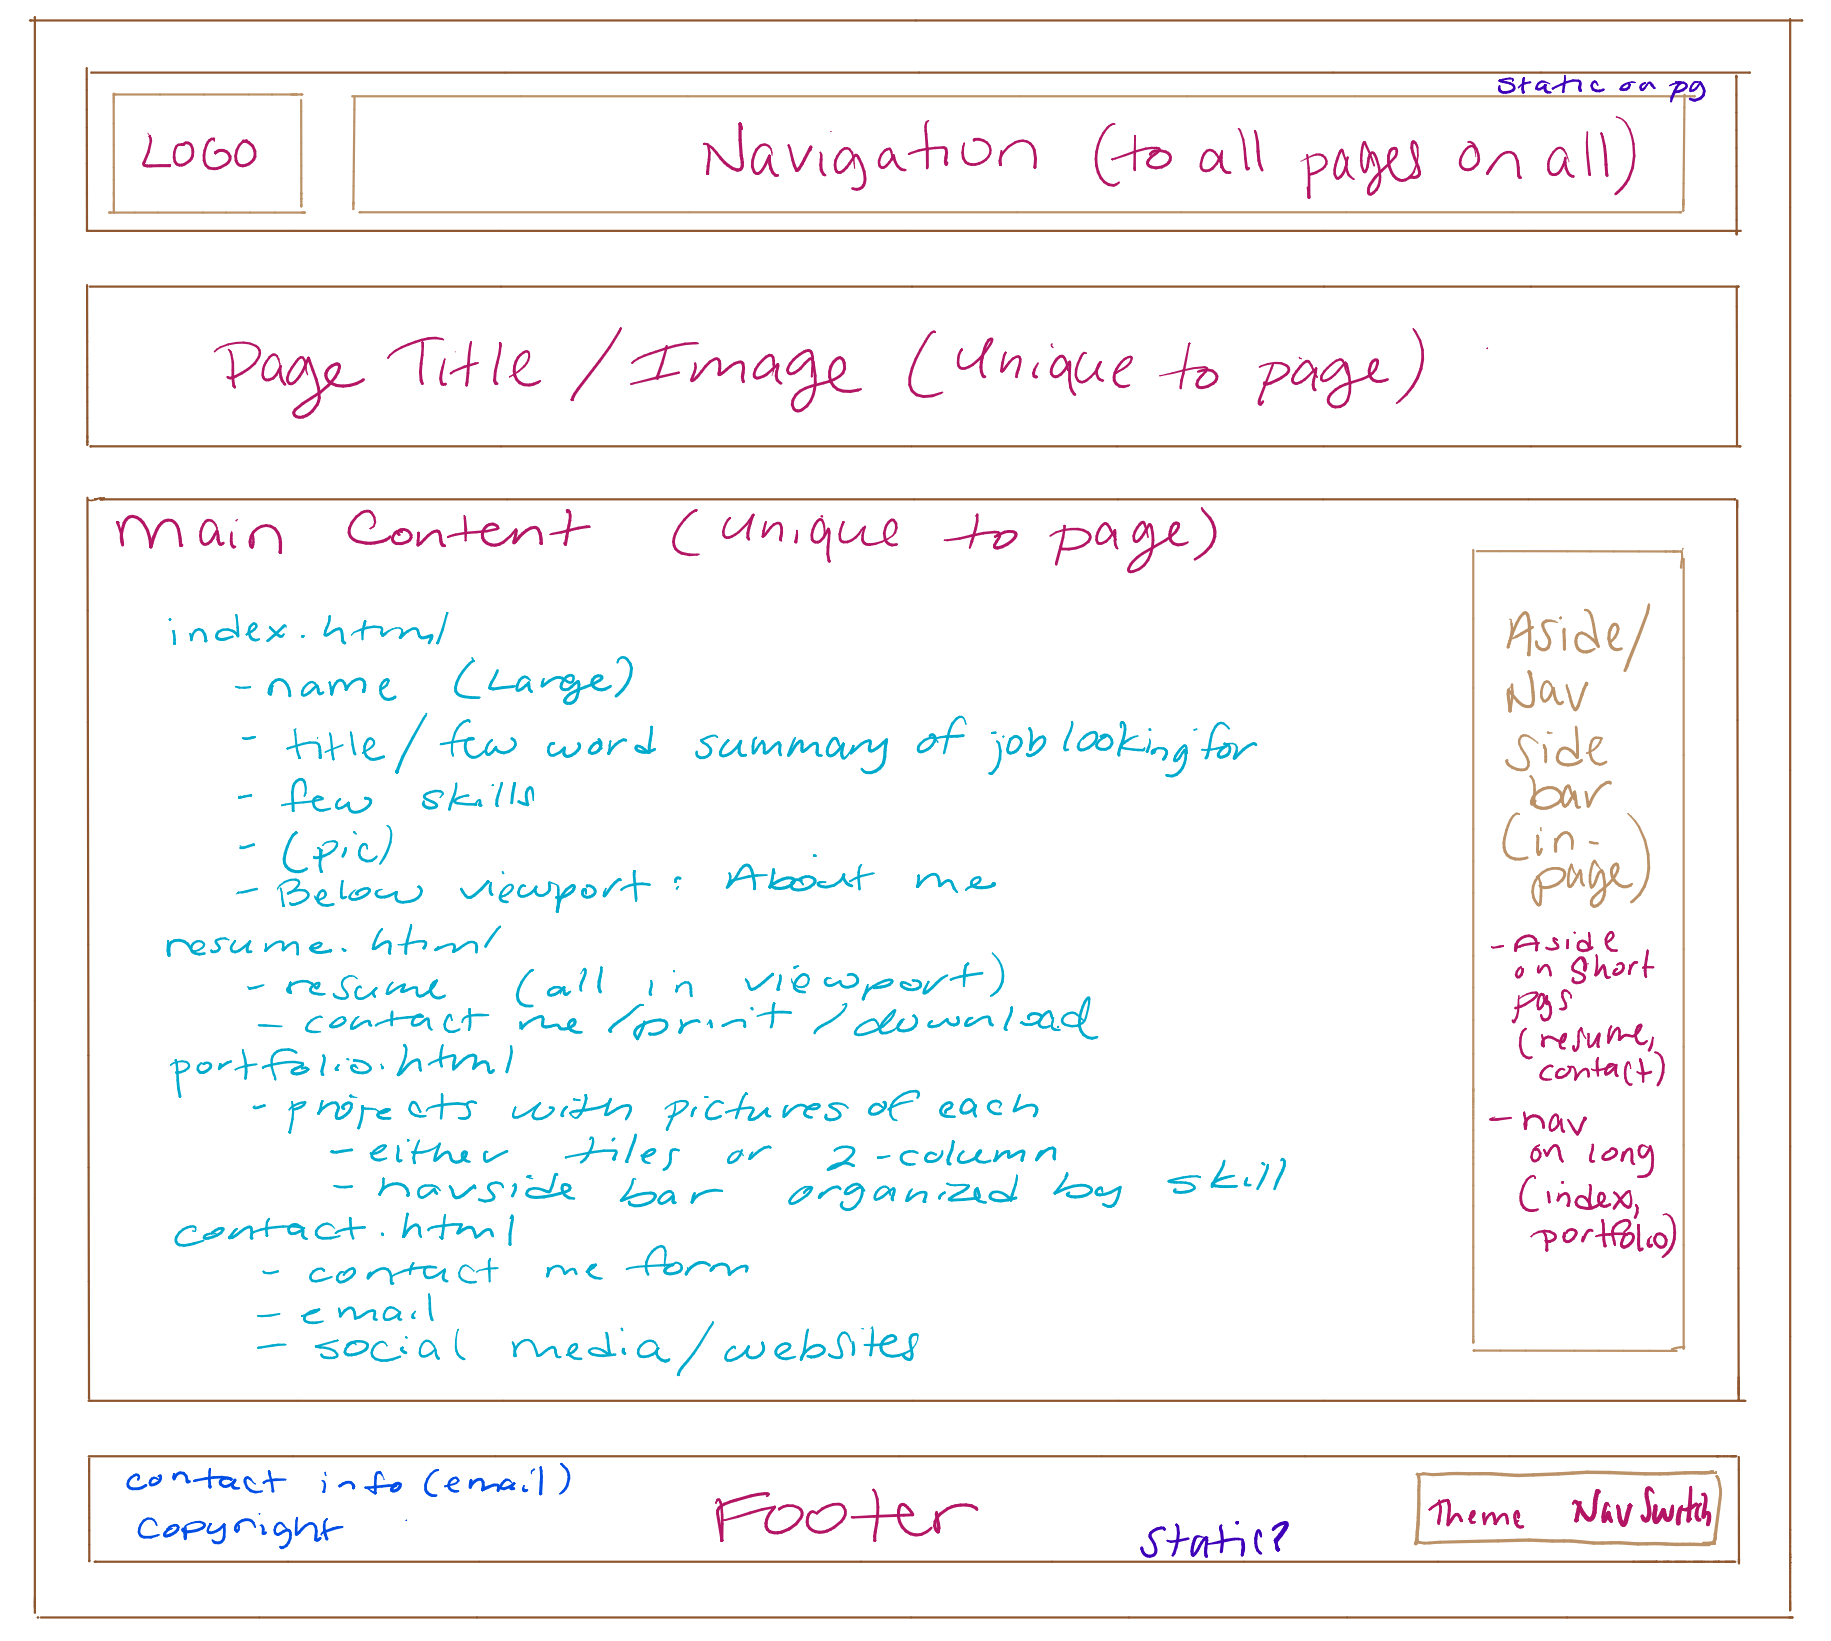 static on pg
LOGO
Navigation (to all pages on all)
Page Title / Image (unique to page)
Main Content (unique to page)
index.html
- name (Large)
- title / few word summary of job looking for
- few skills
- (pic)
- Below viewport: About me
resume.html
- resume (all in viewport)
- contact me / print / download
portfolio.html
- projects with pictures of each
- either tiles or 2-column
- navside bar organized by skill
contact.html
- contact me form
- email
- social media / websites
Aside/
Nav
side
bar
(in-
page)
- Aside
on short
pgs
(resume,
contact)
- nav
on long
(index,
portfolio)
contact info (email)
copyright
Footer
static?
Theme Nav Switch